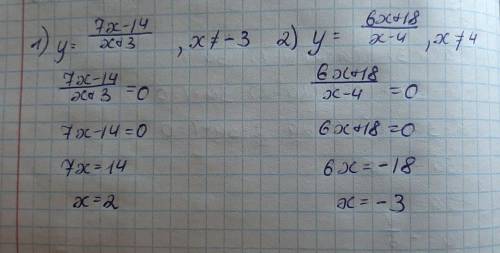 1) y = (7x-14)/(x+3), x ≠ -3
(7x-14)/(x+3) = 0
7x-14=0
7x=14
x=2
2) y = (6x+18)/(x-4), x ≠ 4
(6x+18)/(x-4) = 0
6x+18=0
6x=-18
x=-3